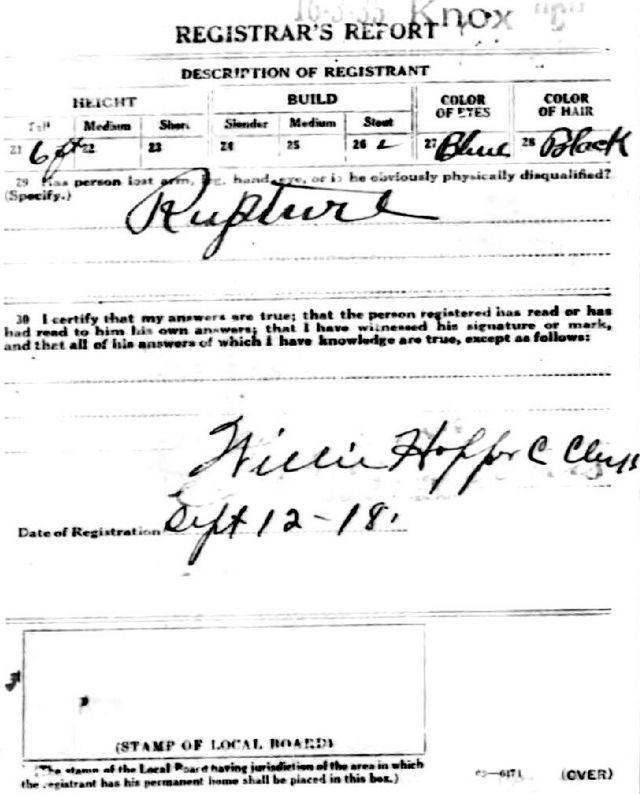 16-3-35 Knox "C"
REGISTRAR'S REPORT
DESCRIPTION OF REGISTRANT
HEIGHT BUILD COLOR OF EYES COLOR OF HAIR
Tall Medium Short Slender Medium Stout
21 6 ft 22 23 24 25 26 27 Blue 28 Black
29 Has person lost arm, leg, hand, eye, or is he obviously physically disqualified?
(Specify.)
Rupture
30 I certify that my answers are true; that the person registered has read or has
had read to him his own answers; that I have witnessed his signature or mark,
and that all of his answers of which I have knowledge are true, except as follows:
Willie Hopper C Clerk
Date of Registration Sept 12-18.
(STAMP OF LOCAL BOARD)
(The stamp of the Local Board having jurisdiction of the area in which
the registrant has his permanent home shall be placed in this box.)
03—6171 (OVER)